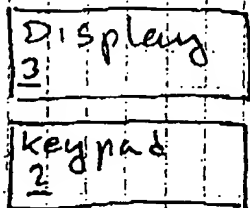 Display
3
keypad
2